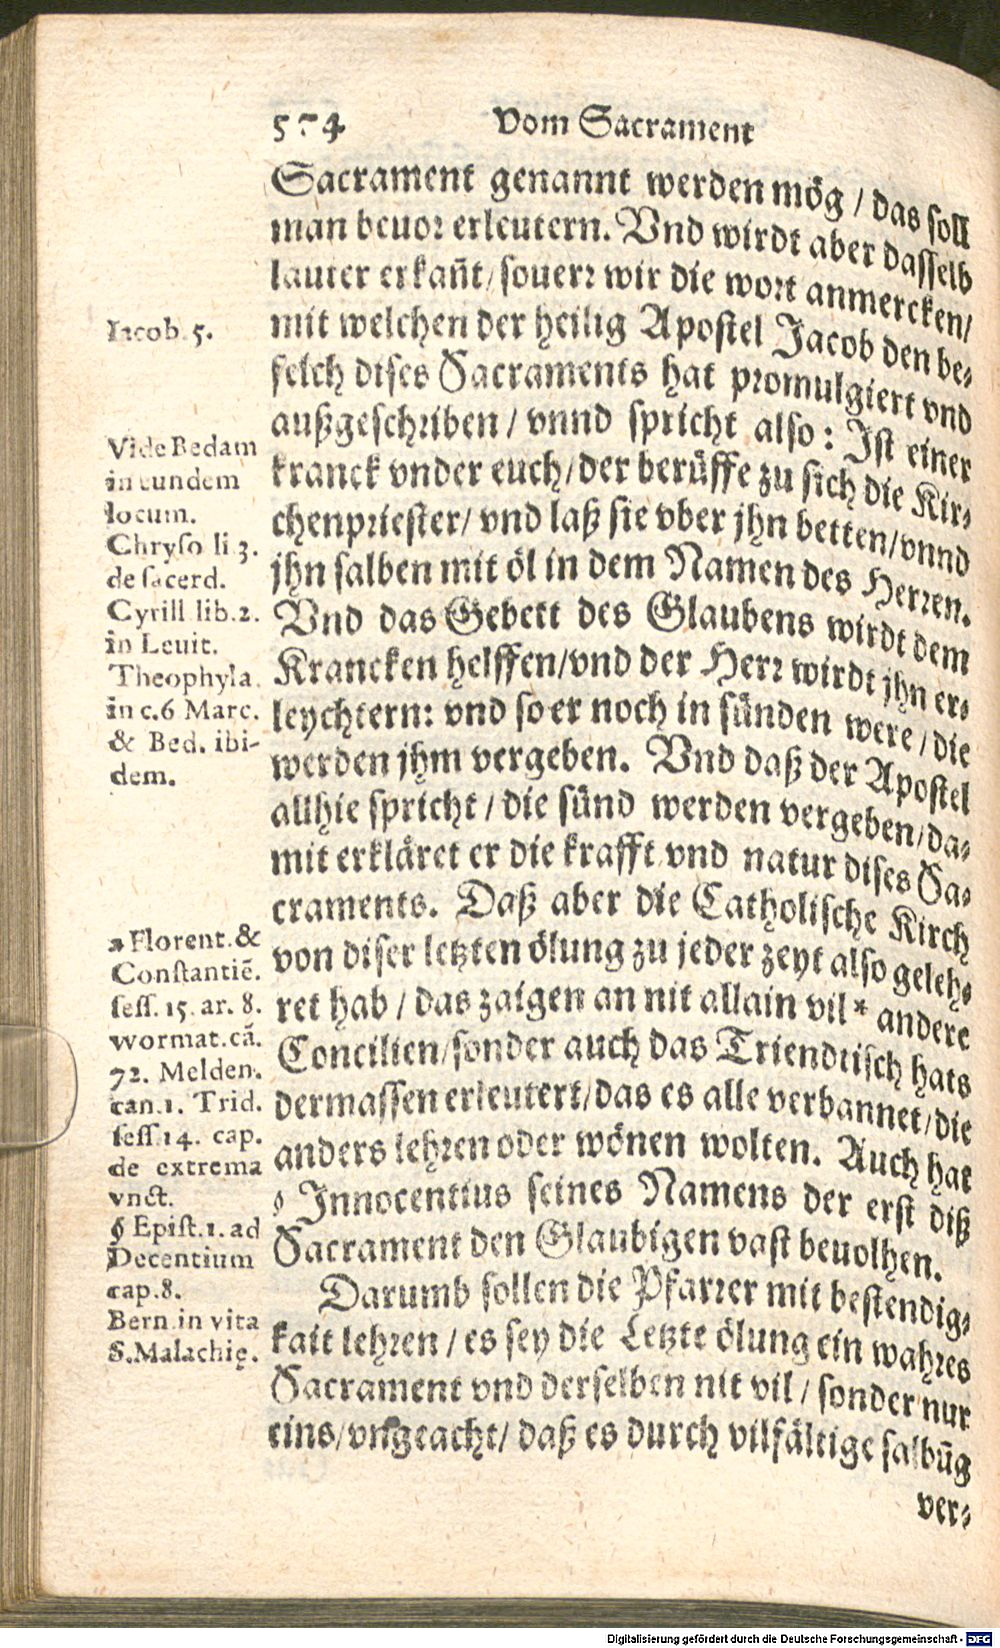 574 Vom Sacrament
Sacrament genannt werden mög / das soll
man beuor erleutern. Vnd wirdt aber dasselb
lauter erkañt / souerr wir die wort anmercken /
mit welchen der heilig Apostel Jacob den be⸗
felch dises Sacraments hat promulgiert vnd
außgeschriben / vnnd spricht also: Ist einer
kranck vnder euch / der berüffe zu sich die Kir⸗
chenpriester / vnd laß sie vber jhn betten / vnnd
jhn salben mit öl in dem Namen des Herren.
Vnd das Gebett des Glaubens wirdt dem
Krancken helffen / vnd der Herr wirdt jhn er⸗
leychtern: vnd so er noch in sünden were / die
werden jhm vergeben. Vnd daß der Apostel
allhie spricht / die sünd werden vergeben / da⸗
mit erkläret er die krafft vnd natur dises Sa⸗
craments. Daß aber die Catholische Kirch
von diser letzten ölung zu jeder zeyt also geleh⸗
ret hab / das zaigen an nit allain vil * andere
Concilien / sonder auch das Triendtisch hats
dermassen erleutert / das es alle verbannet / die
anders lehren oder wönen wolten. Auch hat
§ Innocentius seines Namens der erst diß
Sacrament den Glaubigen vast beuolhen.
Darumb sollen die Pfarrer mit bestendig⸗
kait lehren / es sey die Letzte ölung ein wahres
Sacrament vnd derselben nit vil / sonder nur
eins / vngeacht / daß es durch vilfältige salbũg
ver⸗
Iacob. 5.
Vide Bedam
in eundem
locum.
Chryso li.3.
de sacerd.
Cyrill lib.2.
in Leuit.
Theophyla.
in c.6 Marc.
& Bed. ibi-
dem.
* Florent. &
Constantiē.
sess. 15. ar. 8.
wormat. cā.
72. Melden.
can. 1. Trid.
sess. 14. cap.
de extrema
vnct.
§ Epist. 1. ad
Decentium
cap. 8.
Bern. in vita
S. Malachię.
Digitalisierung gefördert durch die Deutsche Forschungsgemeinschaft - DFG